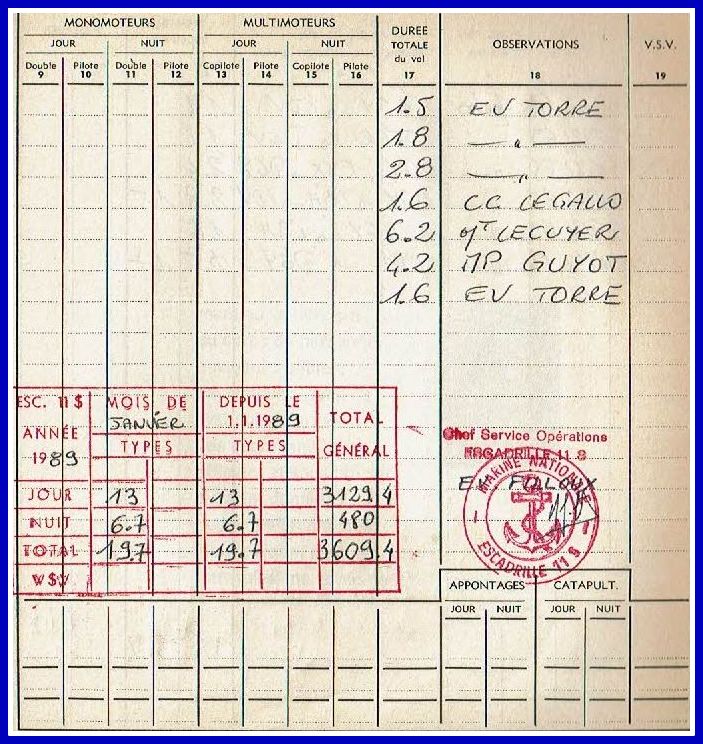 MONOMOTEURS MULTIMOTEURS DUREE TOTALE du vol OBSERVATIONS V.S.V.
JOUR NUIT JOUR NUIT
Double Pilote Double Pilote Copilote Pilote Copilote Pilote
9 10 11 12 13 14 15 16 17 18 19
1.5 EV TORRE
1.8 — " —
2.8 — " —
1.6 CC LEGALLO
6.2 LECUYER
4.2 MP GUYOT
1.6 EV TORRE
ESC. 11 S MOIS DE DEPUIS LE
JANVIER 1.1.1989 TOTAL
ANNÉE TYPES TYPES GÉNÉRAL
1989
JOUR 13 13 3129.4
NUIT 6.7 6.7 480
TOTAL 19.7 19.7 3609.4
VSV
Chef Service Opérations
ESCADRILLE 11 S
EV
MARINE NATIONALE
ESCADRILLE 11 S
APPONTAGES CATAPULT.
JOUR NUIT JOUR NUIT